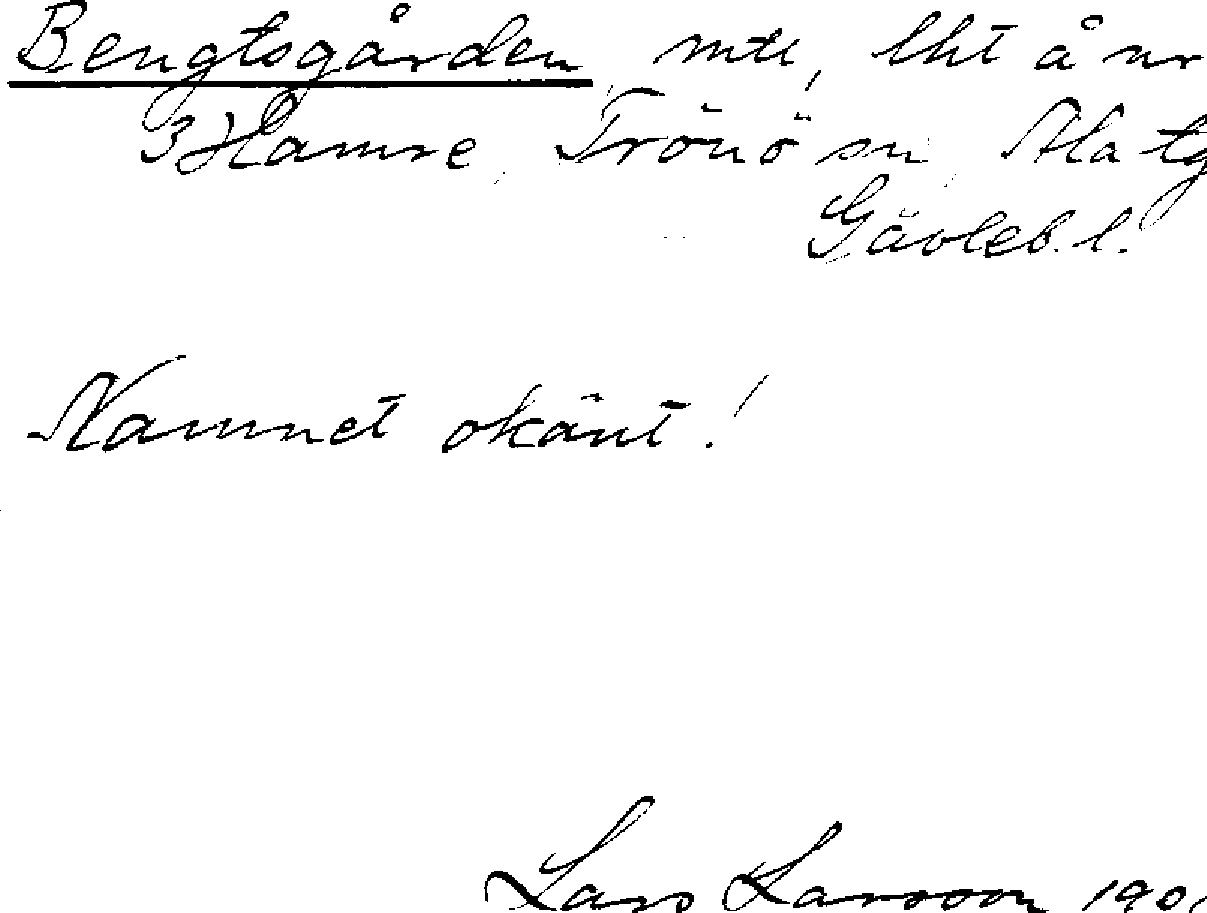 Bengtsgården, mtl, lht å nr
3 Hamre, Trönö sn, Ala tg
Gävleb. l.
Namnet okänt!
Lars Larsson